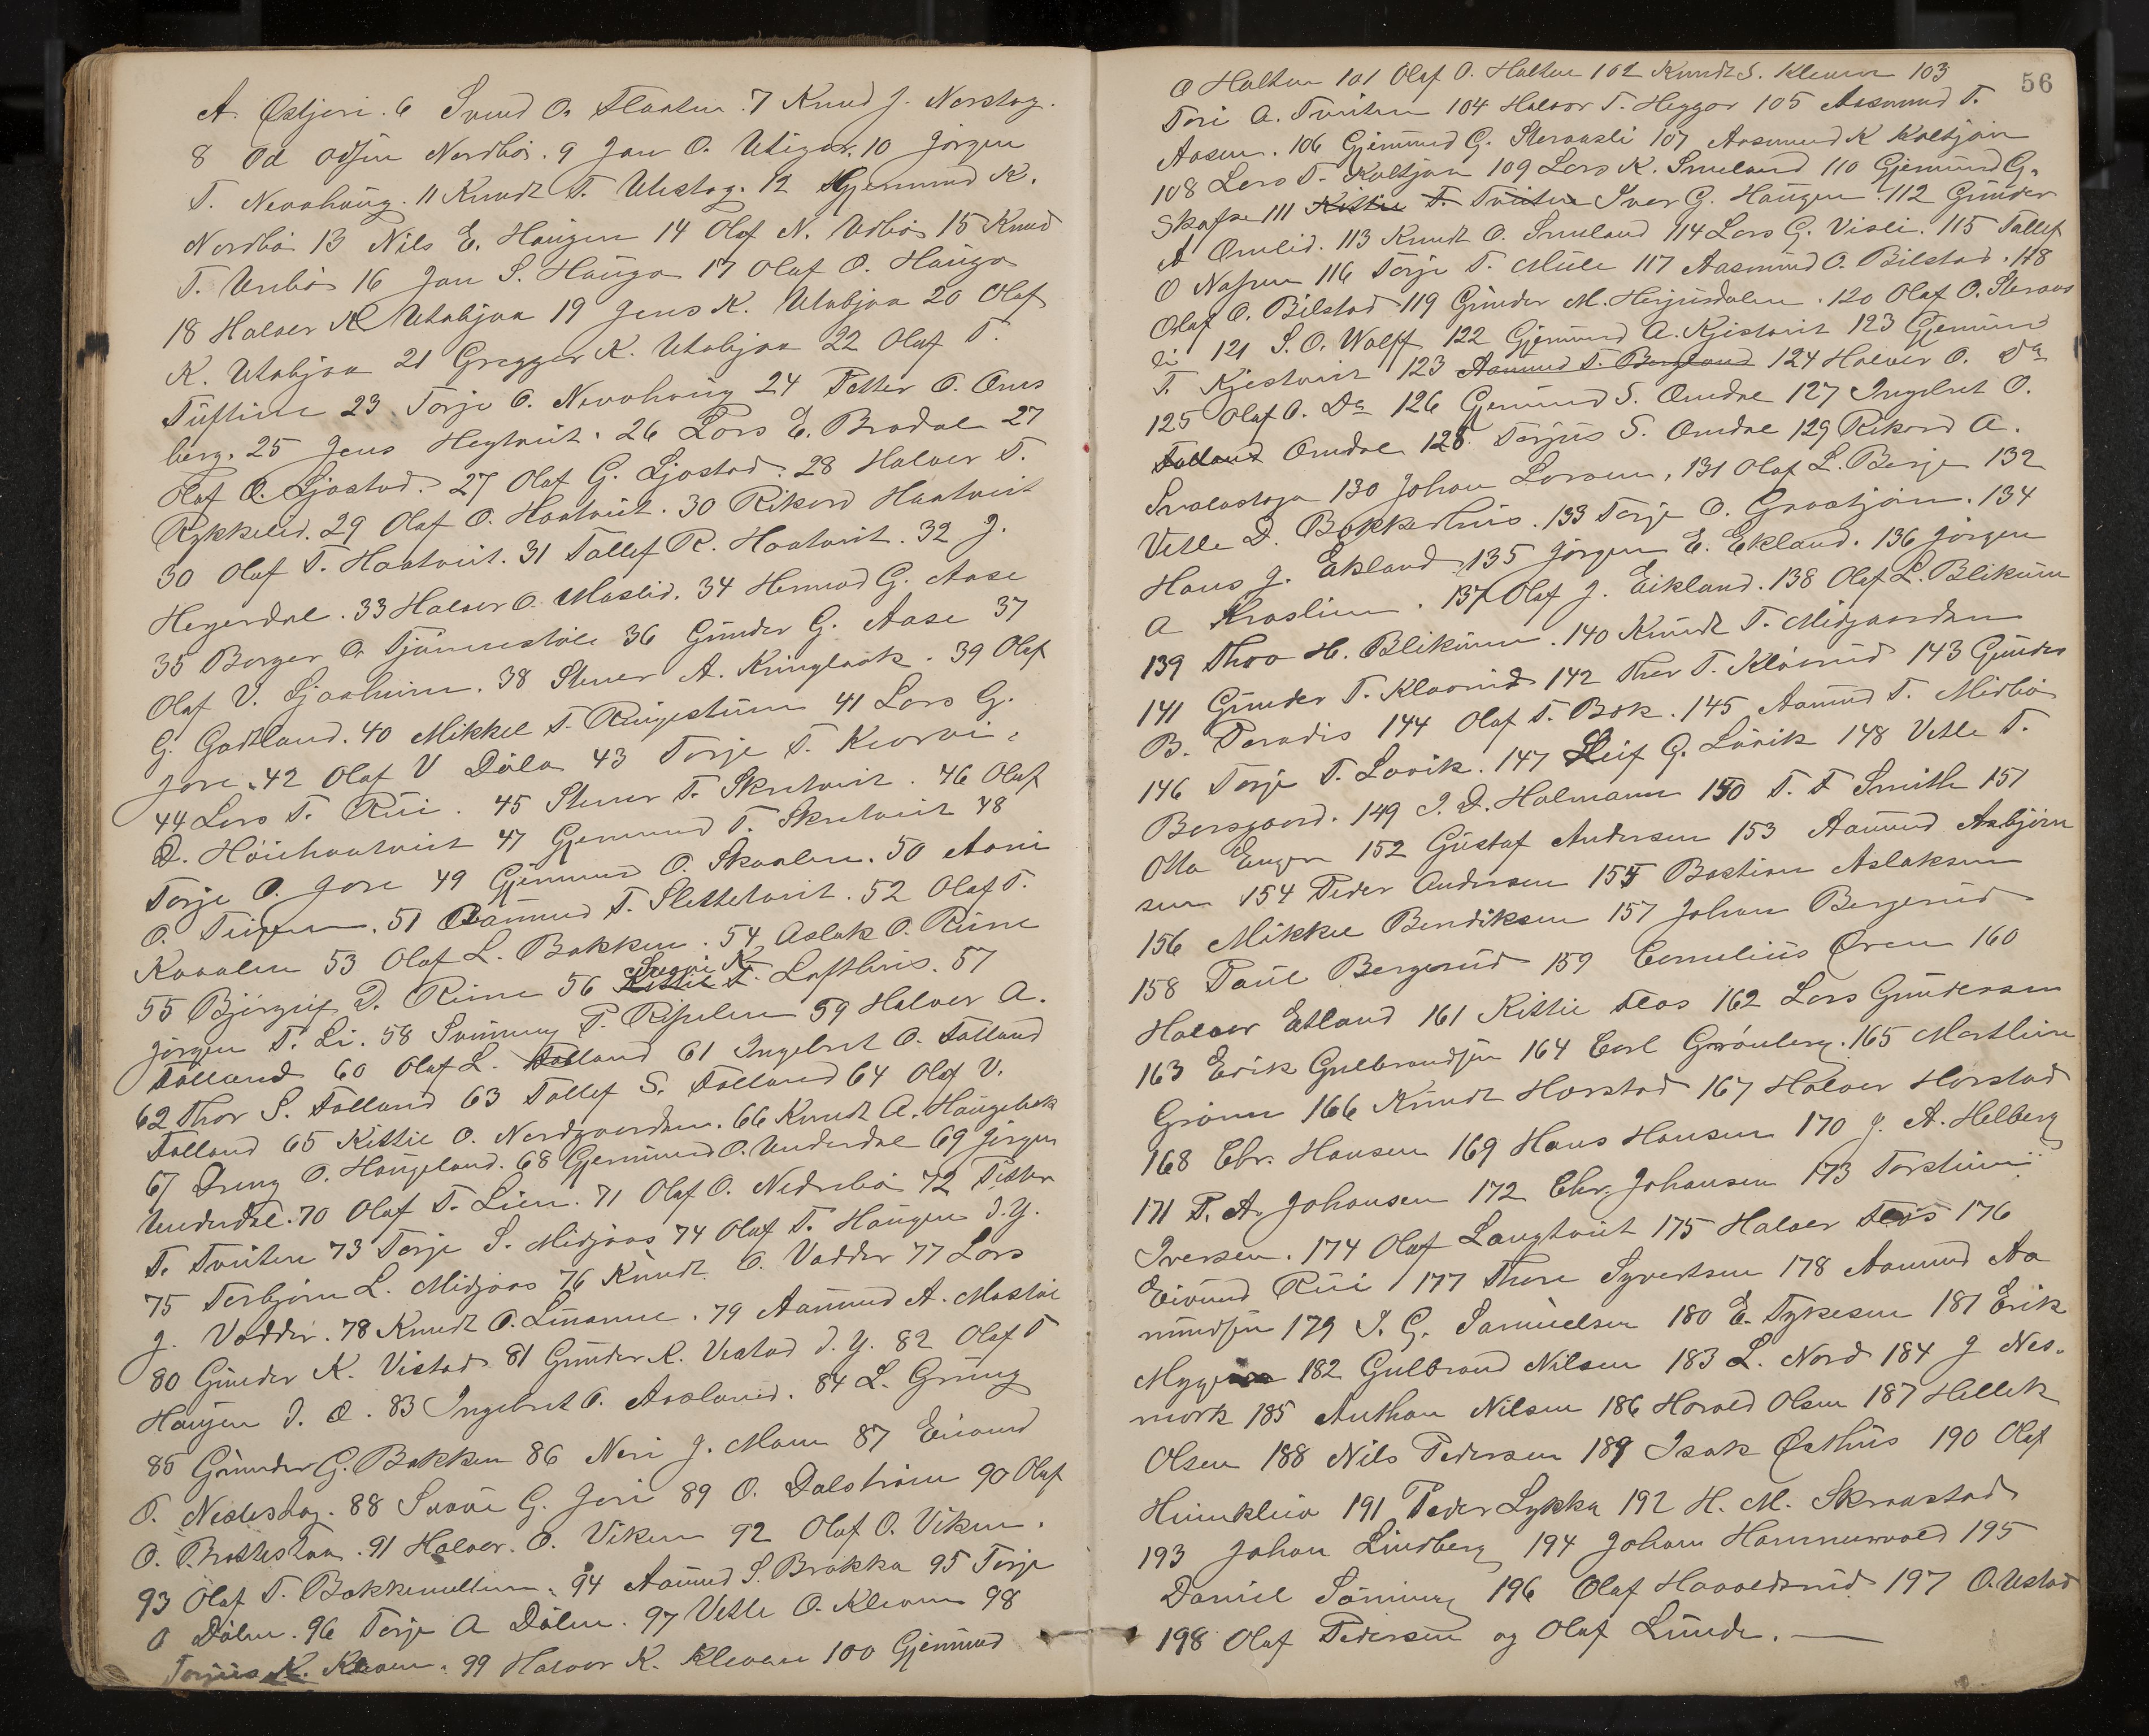 A. Østjori. 6 Svend O. Flaaten. 7 Knud J. Norstog.
8 Od Odsen Nordbø. 9 Jan O. Utigar. 10 Jørgen
T. Nevahaug. 11 Knudt T. Utistog. 12 Gjermund K.
Nordbø 13 Nils E. Haugen 14 Olaf N. Udbø 15 Knud
T. Urdbø 16 Jan S. Hauga 17 Olaf O. Hauga
18 Halvor K Utabjaa 19 Jens K. Utabjaa 20 Olaf
K. Utabjaa 21 Gregger K. Utabjaa 22 Olaf T.
Tuftine 23 Torje O. Nevahaug 24 Petter O. Oms
berg. 25 Jens Heggtveit. 26 Lars E. Bradal 27
Olaf O. Ljostad. 27 Olaf G. Ljostad. 28 Halvor T.
Rykkelid. 29 Olaf O. Haatveit. 30 Rikard Haatveit
30 Olaf T. Haatveit. 31 Tallef R. Haatveit. 32 J.
Hegerdal. 33 Halvor O. Maslid. 34 Hermod G. Aase
35 Borger O. Tjønnestøle 36 Gunder G. Aase 37
Olaf V. Ljosheim. 38 Stener A. Kringlaak. 39 Olaf
G. Godtland. 40 Mikkel T. Ringestuen 41 Lars G.
Jore. 42 Olaf V Døla 43 Torje T. Kivrvi.
44 Lars T. Rui. 45 Stener T. Skretveit. 46 Olaf
D. Høiehaatveit 47 Gjermund T. Skretveit 48
Torje O. Jore 49 Gjermund O. Skaalen. 50 Aani
O. 51 Aamund T. Slettetveit. 52 Olaf T.
Kaaalen 53 Olaf L. Bakken. 54 Aslak O. Riine
55 Bjørguf D. Riine 56 Sveini K. Lofthus. 57
Jørgen T. Li. 58 Svennung T. Ripelen 59 Halvor A.
Folland 60 Olaf L. Folland 61 Ingebret O. Folland
62 Thor S. Folland 63 Tallef S. Folland 64 Olaf V.
Folland 65 Kittil O. Nordgaarden. 66 Knudt A. Haugebak
67 Dreng O. Haugeland. 68 Gjermund O. Underdal 69 Jørgen
Underdal. 70 Olaf T. Lien. 71 Olaf O. Nedrebø 72 Petter
T. Tveiten 73 Torje S. Midjaas 74 Olaf T. Haugen D. Y.
75 Torbjørn L. Midjaas 76 Knudt O. Vadder 77 Lars
J. Vadder. 78 Knudt O. Linanne. 79 Aamund A. Mastøi
80 Gunder K. Vistad 81 Gunder K. Vistad D. Y. 82 Olaf T
Haugen D. Æ. 83 Ingebret O. Arslaund. 84 L. Grung
85 Gunder G. Bakken 86 Neri J. Moen 87 Eivind
O. Nedestog. 88 Svani G. Jori 89 O. Dalstrøm 90 Olaf
O. Brattestaa. 91 Halvor O. Viken 92 Olaf O. Viken.
93 Olaf T. Bakkemellum. 94 Aamund S. Brokka 95 Torje
O Dølen. 96 Torje A Dølen. 97 Vetle O. Kleven 98
Torjus K. Kleven. 99 Halvor K. Kleven 100 Gjermund
56
O Halten 101 Olaf O. Halten 102 Knudt S. Kleven 103
Tori A. Tveiten 104 Halvor T. Heggar 105 Aasmund T.
Aasen. 106 Gjermund G. Steraasli 107 Aasmund K Kaltjøn
108 Lars T. Kaltjøn 109 Lars K. Smeland 110 Gjermund G.
Skafse 111 Kittil T. Tveiten Iver G. Haugen 112 Gunder
A Omlid. 113 Knudt O. Smeland 114 Lars G. Visli. 115 Tallef
O Napen 116 Torje T. Mule 117 Aasmund O. Bilstad. 118
Olaf O. Bilstad 119 Gunder M. Herjusdalen. 120 Olaf O. Steraas
li 121 S. O. Wolff 122 Gjermund A. Kjistveit 123 Gjermund
T. Kjestveit 123 Aamund T. Bergland 124 Halvor O. Do
125 Olaf O. Do 126 Gjermund S. Omdal 127 Ingebret O.
Folland Omdal 128 Torjus S. Omdal 129 Rikard A.
Svalastoga 130 Johan Larsen. 131 Olaf L. Berge 132
Vetle D. Bakkerhus. 133 Torje O. Graatjøn. 134
Hans J. Ekland 135 Jørgen E. Ekland. 136 Jørgen
A Kraslien. 137 Olaf J. Eikland. 138 Olaf L. Blikum
139 Thoo H. Blikum. 140 Knudt T. Midgaarden
141 Gunder T. Kløvrud 142 Thor T. Kløvrud 143 Gunder
B. Paradis 144 Olaf T. Bøk. 145 Aamund T. Midbø
146 Torje T. Løvik. 147 Leif G. Løvik 148 Vetle T.
Borsgaard. 149 I. D. Holmann 150 T. F Smith 151
Otto Engen 152 Gustaf Andersen 153 Aamund Asbjørn
sen 154 Peder Andersen 155 Bastian Aslaksen
156 Mikkel Bendiksen 157 Johan Bergerud
158 Paul Bergerud 159 Cornelius Øren 160
Halvor Etland 161 Kittil Flos 162 Lars Gundersen
163 Erik Gulbrandsen 164 Carl Grønberg. 165 Marthin
Grønn 166 Knudt Harstad 167 Halvor Harstad
168 Chr. Hansen 169 Hans Hansen 170 J. A. Helberg
171 P. A. Johansen 172 Chr. Johansen 173 Torstein
Iversen. 174 Olaf Langtveit 175 Halvor Flos 176
Eivind Rui 177 Thore Syvertsen 178 Aamund Aa
mundsen 179 S. G. Samuelsen 180 E. Tykesen 181 Erik
182 Gulbrand Nilsen 183 L. Nord 184 J Nes-
mork 185 Anthon Nilsen 186 Harald Olsen 187 Hellek
Olsen 188 Nils Pedersen 189 Isak Østhus 190 Olaf
Heimkleiv 191 Peder Lykka 192 H. M. Skraastad
193 Johan Lindberg 194 Johan Hammervold 195
Daniel Tønning 196 Olaf Havoldsrud 197 O. Ustad
198 Olaf Pedersen og Olaf Lunde. —